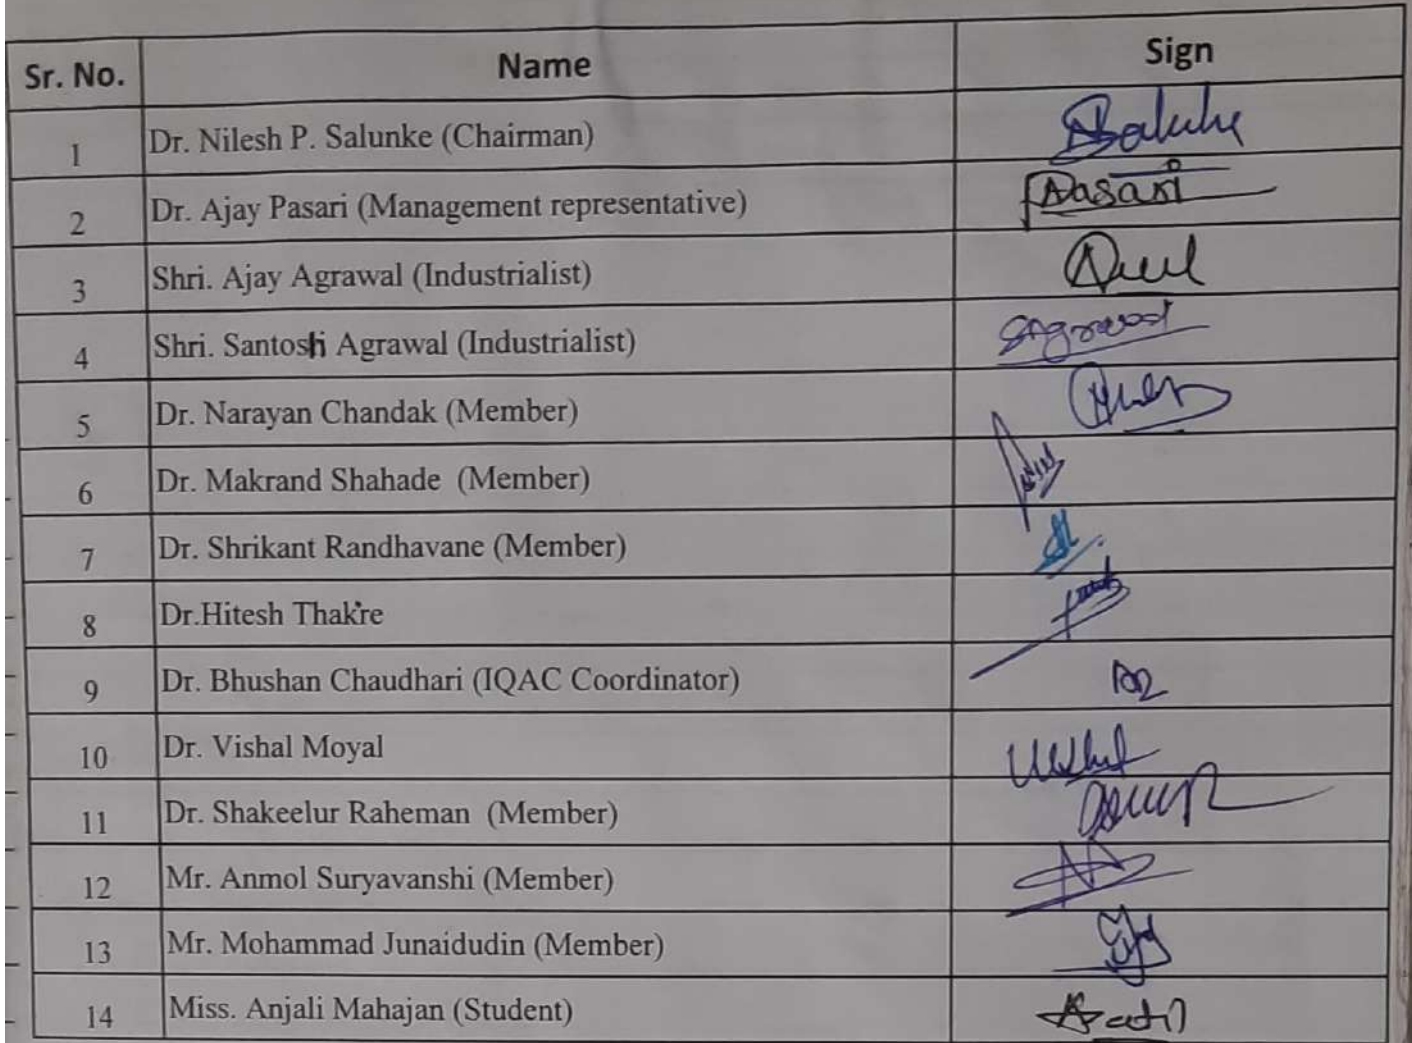 Sr. No. Name Sign
1 Dr. Nilesh P. Salunke (Chairman)
2 Dr. Ajay Pasari (Management representative) Pasari
3 Shri. Ajay Agrawal (Industrialist)
4 Shri. Santosh Agrawal (Industrialist) SAgrawal
5 Dr. Narayan Chandak (Member)
6 Dr. Makrand Shahade (Member)
7 Dr. Shrikant Randhavane (Member)
8 Dr.Hitesh Thakre
9 Dr. Bhushan Chaudhari (IQAC Coordinator)
10 Dr. Vishal Moyal
11 Dr. Shakeelur Raheman (Member)
12 Mr. Anmol Suryavanshi (Member)
13 Mr. Mohammad Junaidudin (Member)
14 Miss. Anjali Mahajan (Student)